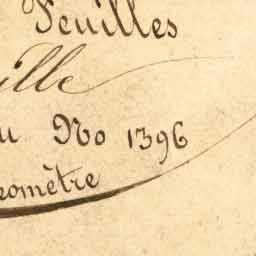 Feuilles
ille
u No 1396
éomètre